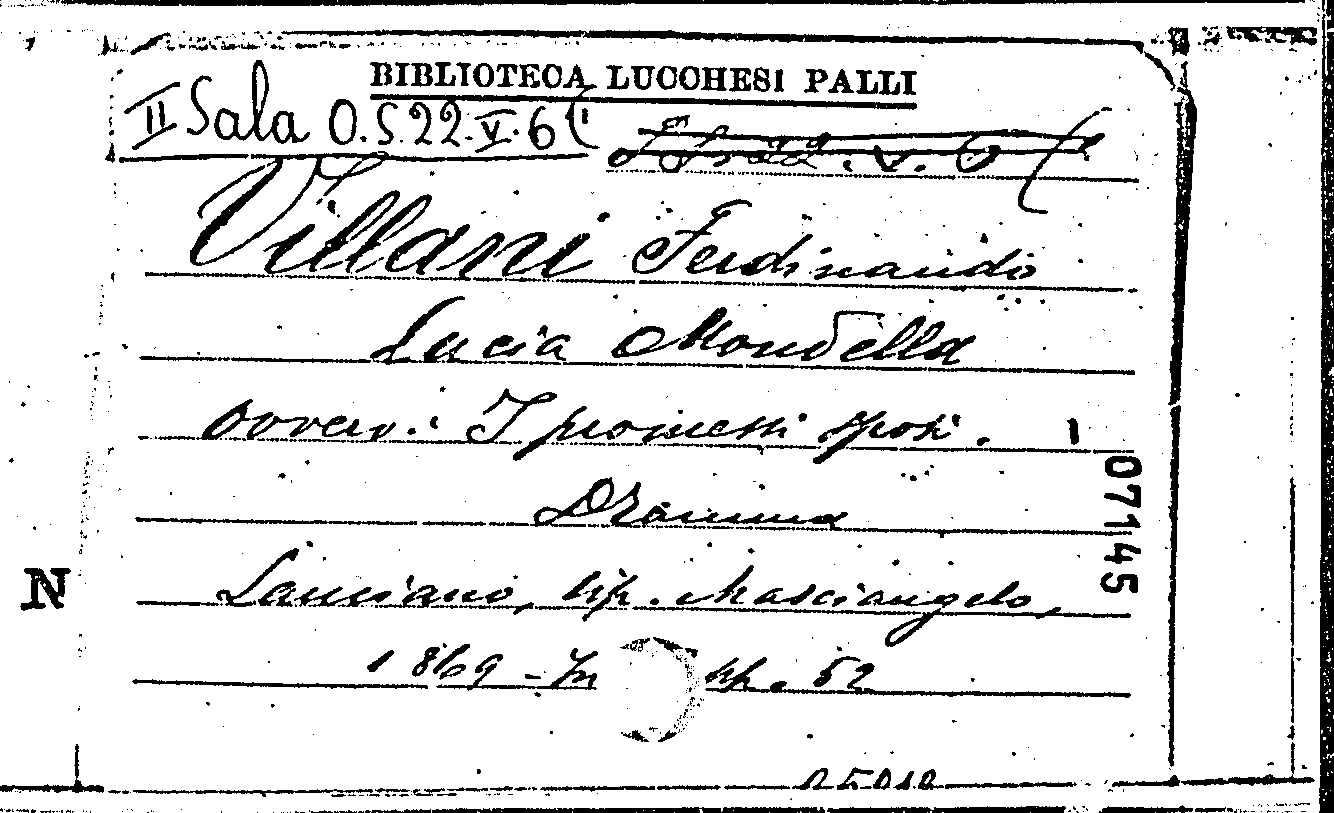 BIBLIOTECA LUCCHESI PALLI
II Sala O.S.22.V.6(
Villani Ferdinando
Lucia Mondella
ovvero: I promessi sposi.
Dramma
07145
Lanciano, tip. Masciangelo,
N
1869 - In pp. 52